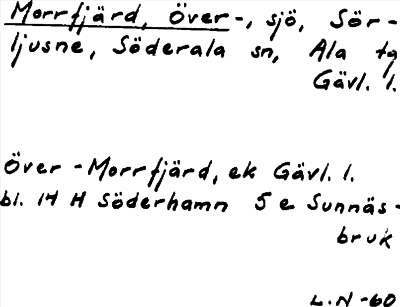 Morrfjärd, Över-, sjö, Sör-
ljusne, Söderala sn, Ala tg
Gävl. l.
Över-Morrfjärd, ek Gävl. l.
bl. 14 H Söderhamn 5 e Sunnäs-
bruk
L.N-60